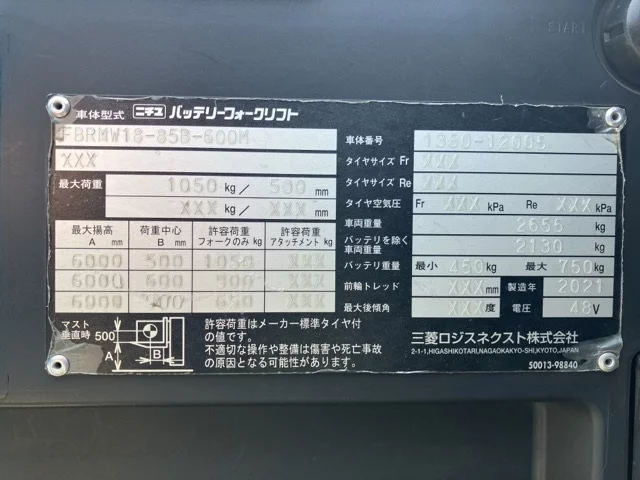 START
車体型式 ニチユ バッテリーフォークリフト
FBRMW18-85B-600M
XXX
最大荷重 1050 kg/ 500 mm
XXX kg/ XXX mm
最大揚高 A mm 荷重中心 B mm 許容荷重 フォークのみ kg 許容荷重 アタッチメント kg
6000 500 1050 XXX
6000 600 XXX
6000 650 XXX
マスト垂直時 500 A B
許容荷重はメーカー標準タイヤ付
の値です。
不適切な操作や整備は傷害や死亡事故
の原因となる可能性があります。
車体番号
タイヤサイズ Fr XXX
タイヤサイズ Re XXX
タイヤ空気圧 Fr XXX kPa Re XXX kPa
車両重量 2655 kg
バッテリを除く車両重量 2130 kg
バッテリ重量 最小 450 kg 最大 750 kg
前輪トレッド XXX mm 製造年 2021
最大後傾角 XXX 度 電圧 48 V
三菱ロジスネクスト株式会社
2-1-1,HIGASHIKOTARI,NAGAOKAKYO-SHI,KYOTO,JAPAN
50013-98840